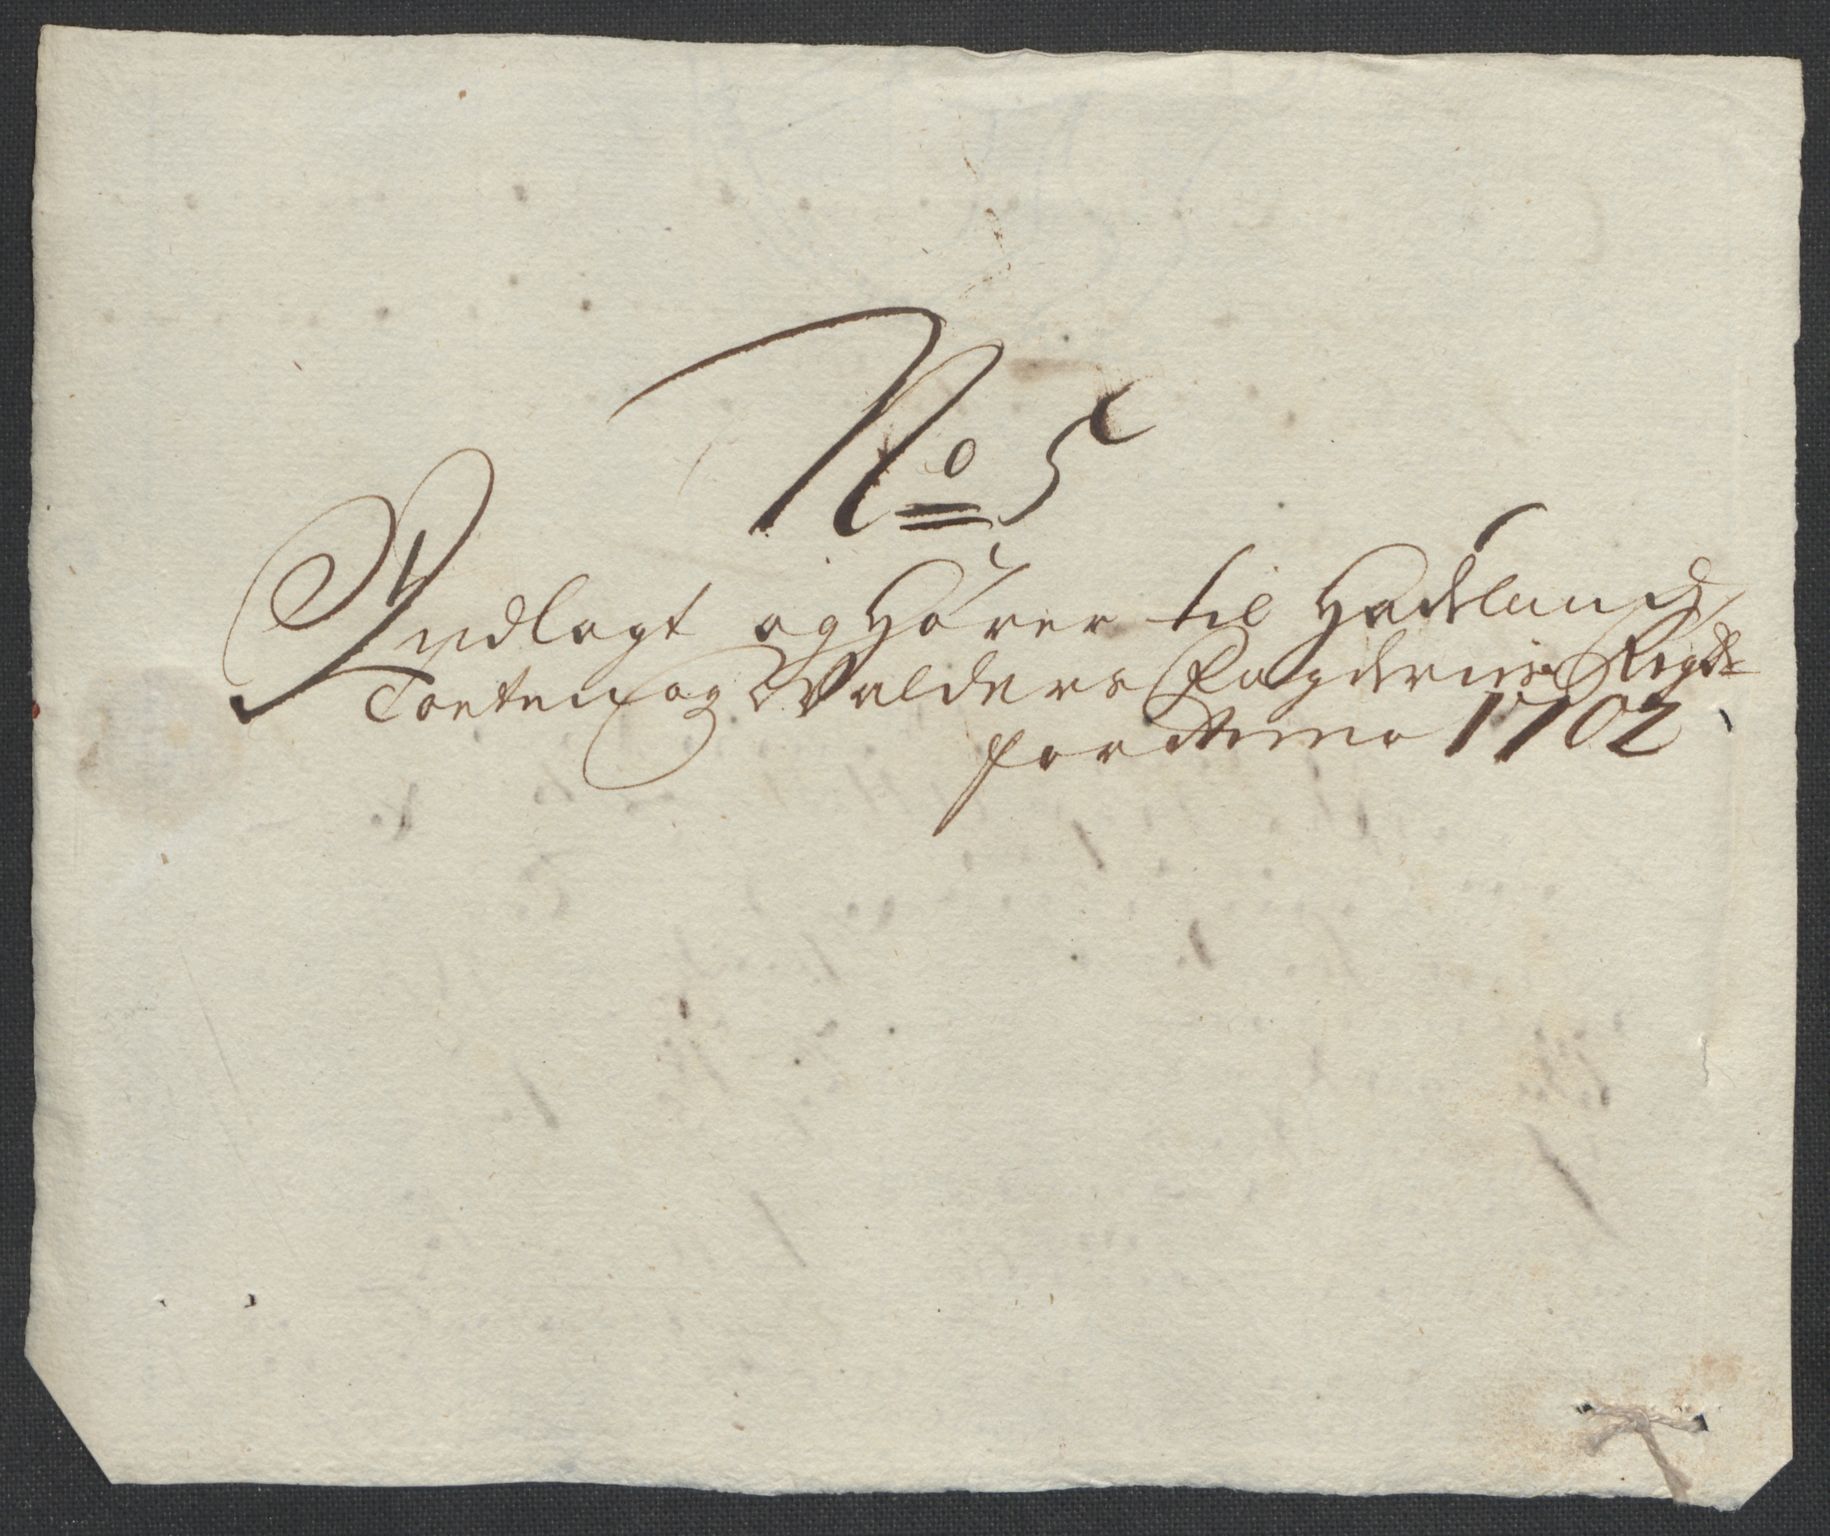 No 5
Indlagt og Hörer til Hadelands
Toeten og Valders Fogderies Regsk:
for Anno 1702